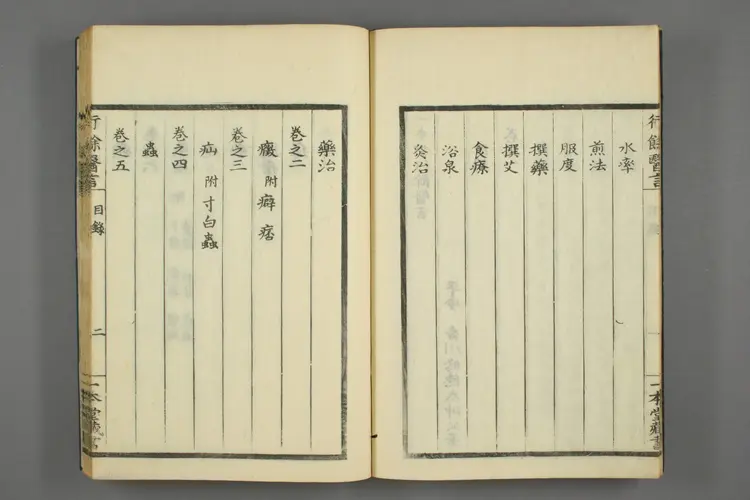 水率
煎法
服度
撰藥
撰艾
食療
浴泉
灸治
藥治
卷之二
癥 附 癖 痞
卷之三
疝 附 寸白蟲
卷之四
蟲
卷之五
行餘醫言
目錄
二
一本堂藏書
行餘醫言
一本堂藏書